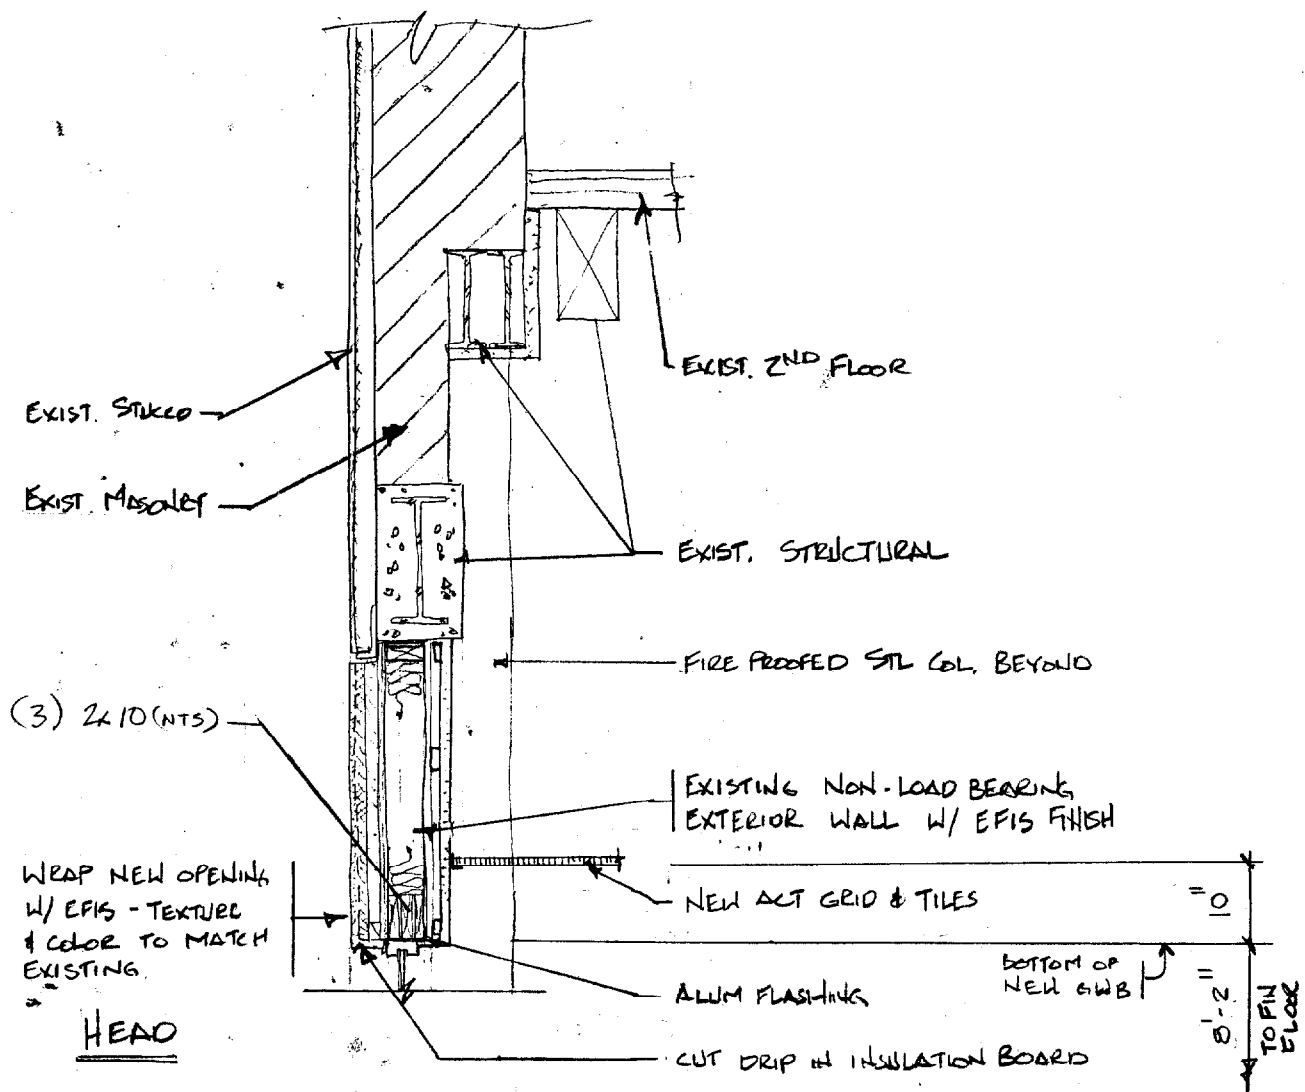 EXIST. 2ND FLOOR
EXIST. STUCCO
EXIST MASONRY
EXIST. STRUCTURAL
FIRE PROOFED STL COL. BEYOND
(3) 2x10 (NTS)
EXISTING NON-LOAD BEARING
EXTERIOR WALL W/ EFIS FINISH
WRAP NEW OPENING
W/ EFIS - TEXTURE
& COLOR TO MATCH
EXISTING.
NEW ACT GRID & TILES
BOTTOM OF
NEW GWB
8'-2"
TO FIN
FLOOR
ALUM FLASHING
HEAD
CUT DRIP IN INSULATION BOARD